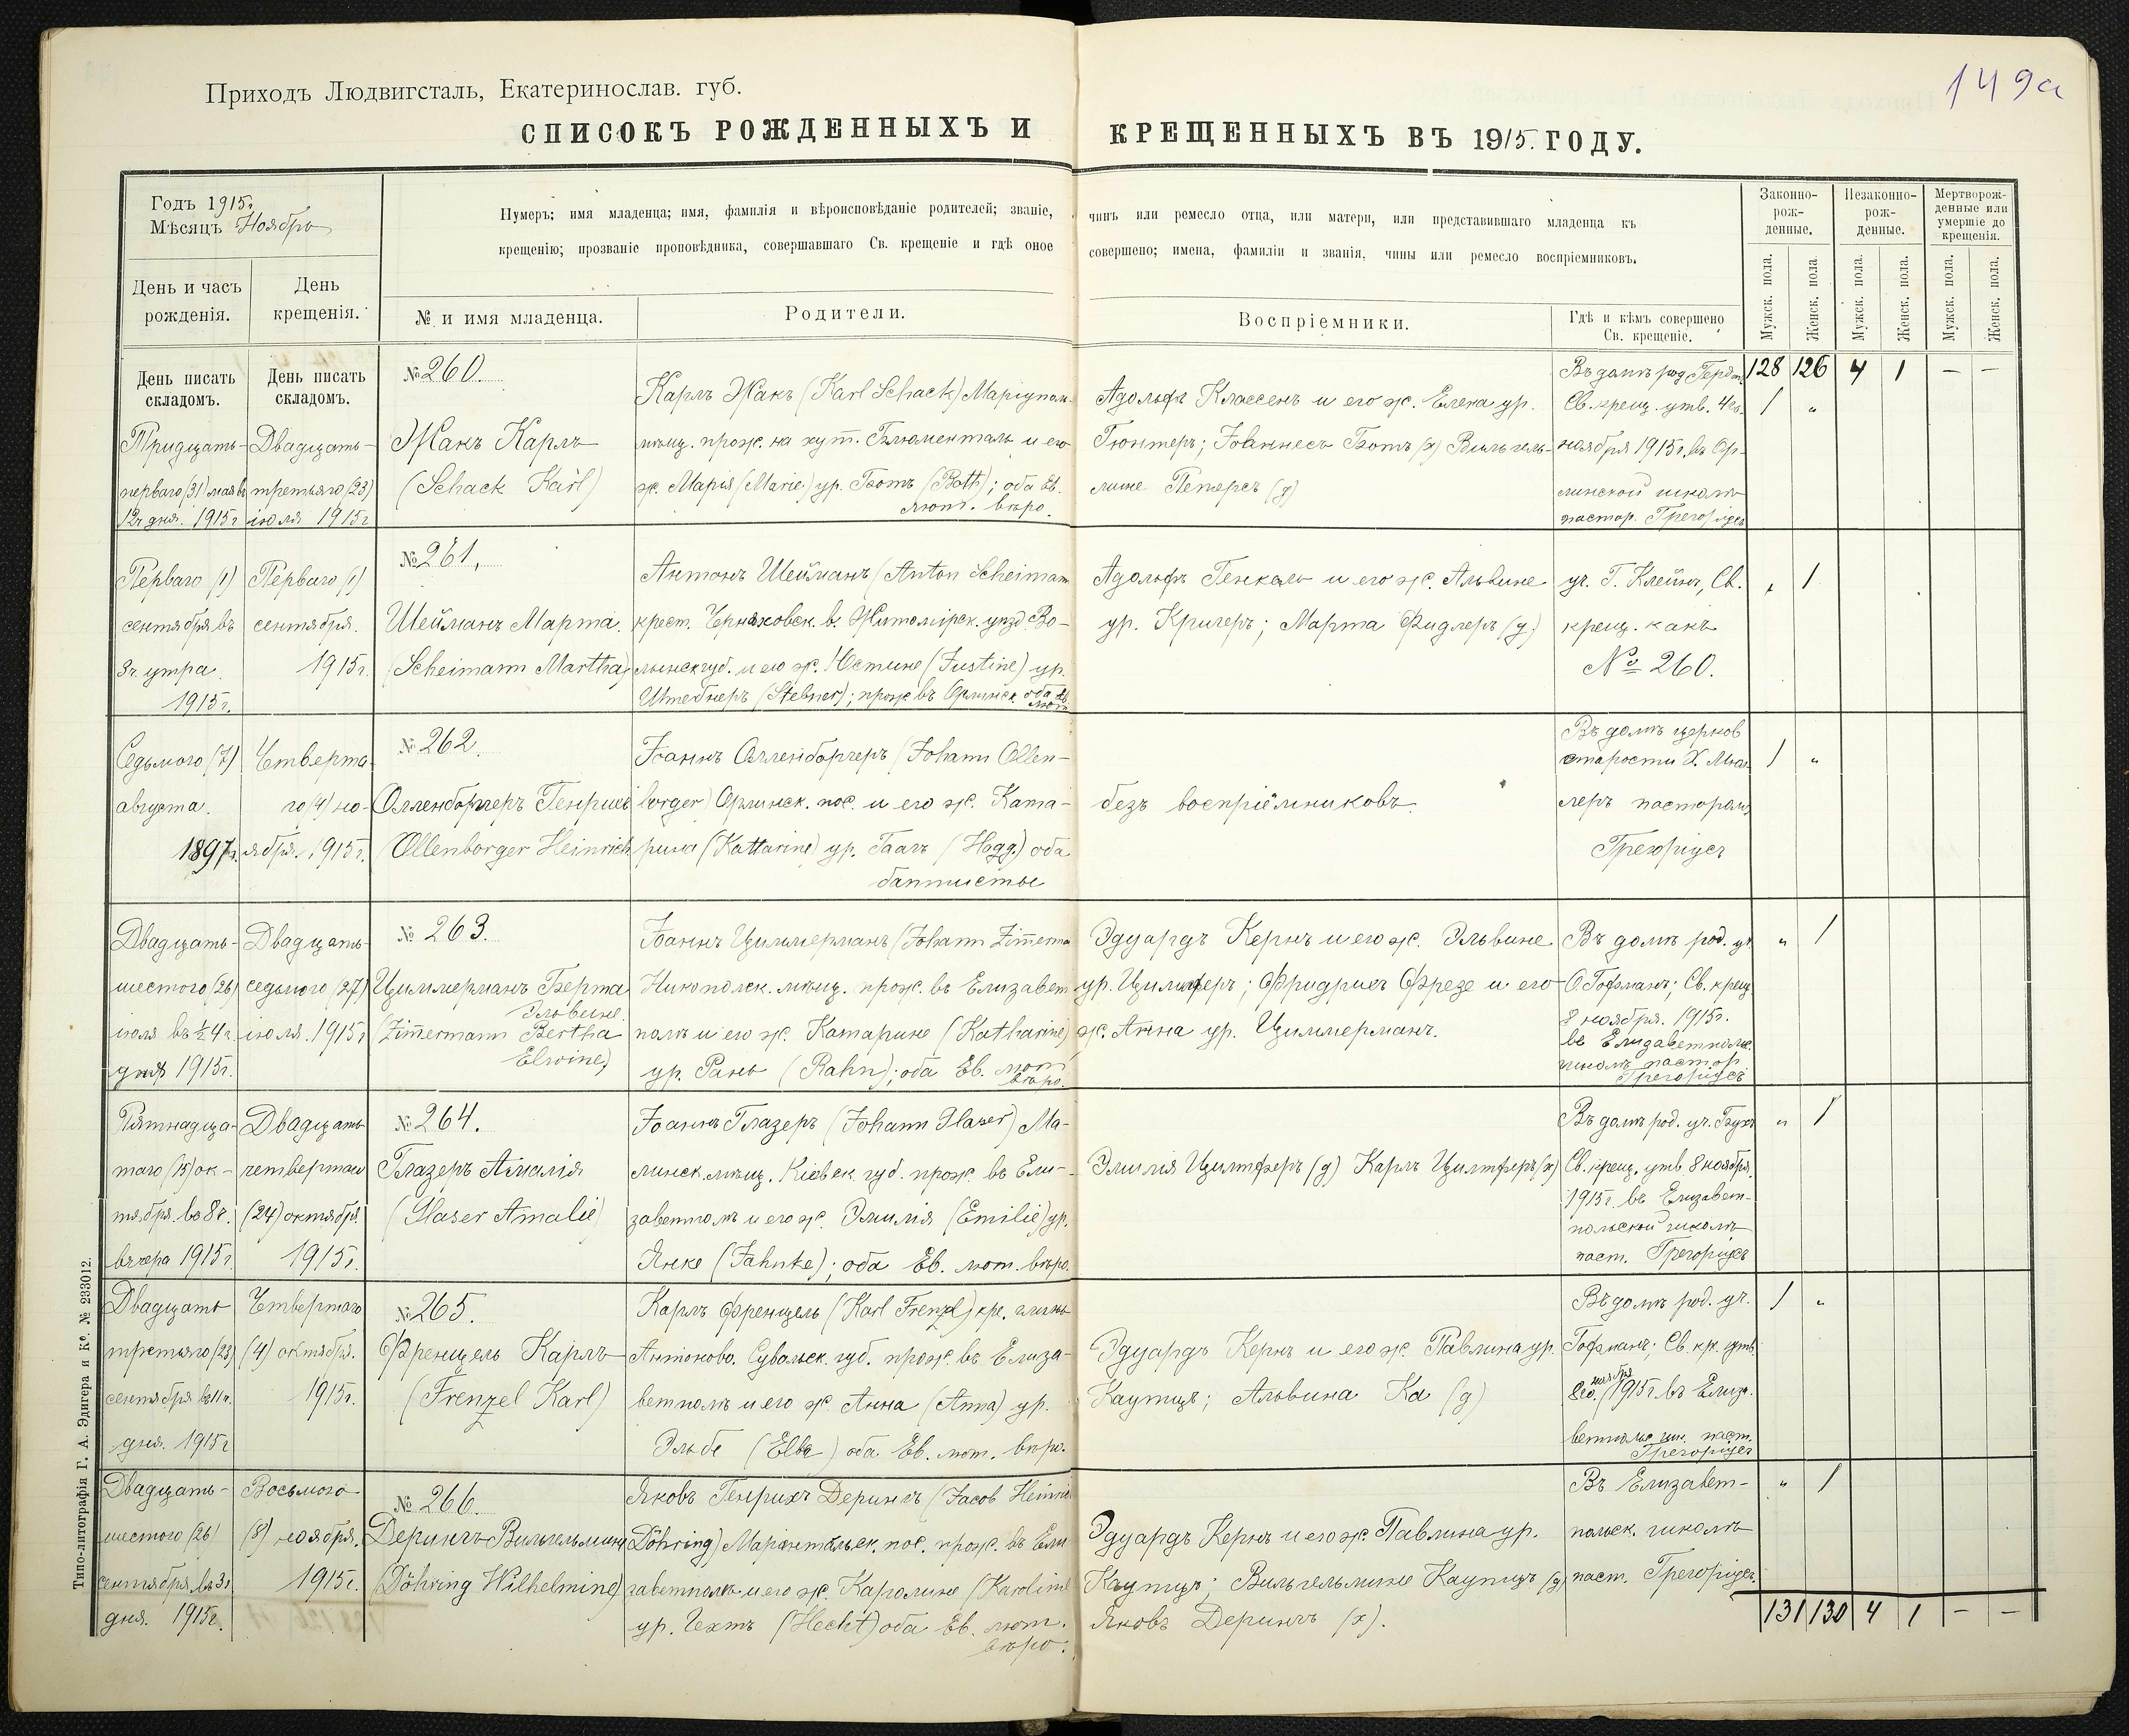 149а
Приходъ Людвигсталь, Екатеринослав. губ.
СПИСОКЪ РОЖДЕННЫХЪ И КРЕЩЕННЫХЪ ВЪ 1915. ГОДУ.
Годъ 1915г.
Мѣсяцъ Ноябрь
День и часъ
рожденія.
День
крещенія.
Нумеръ; имя младенца; имя, фамилія и вѣроисповѣданіе родителей; званіе, чинъ или ремесло отца, или матери, или представившаго младенца къ
крещенію; прозваніе проповѣдника, совершавшаго Св. крещеніе и гдѣ оное совершено; имена, фамиліи и званія, чины или ремесло воспріемниковъ.
№ и имя младенца.
Родители.
Воспріемники.
Гдѣ и кѣмъ совершено
Св. крещеніе.
Законно-
рож-
денные.
Незаконно-
рож-
денные.
Мертворож-
денные или
умершіе до
крещенія.
Мужск. пола.
Женск. пола.
Мужск. пола.
Женск. пола.
Мужск. пола.
Женск. пола.
128 126 4 1 — —
День писать
складомъ.
Тридцать-
перваго (31) мая въ
12ч дня. 1915г
День писать
складомъ.
Двадцать-
третьяго (23)
іюля 1915г
№ 260.
Жакъ Карлъ
(Schack Karl)
Карлъ Жакъ (Karl Schack) Маріупол.
мѣщ. прож. на хут. Блюменталь и его
ж. Марія (Marie) ур. Ботъ (Both); оба Ев.
лют. вѣро.
Адольфъ Классенъ и его ж. Елена ур.
Гюнтеръ; Іоаннесъ Ботъ (х) Вильгель-
мине Петерсъ (д)
Въ домѣ род.
Св. крещ. утв. 4го
ноября 1915г. въ Ор-
линской школѣ
пастор. Грегоріусъ
1 "
Перваго (1)
сентября въ
3ч. утра.
1915г.
Перваго (1)
сентября.
1915г.
№ 261.
Шейманъ Марта.
(Scheimann Martha)
Антонъ Шейманъ (Anton Scheimann
крест. Черняховск. в. Житомірск. уѣзд. Во-
лынск. губ. и его ж. Юстине (Justine) ур.
Штебнеръ (Stebner); прож въ Орлинск. оба Ев.
лют
Адольфъ Генкель и его ж. Альвине
ур. Кригеръ; Марта Фидлеръ (д)
уч. Г. Клейнъ, Св.
крещ. какъ
№ 260.
" 1
Седьмого (7)
августа.
1897г.
Четверта-
го (4) но-
ября. 1915г.
№ 262.
Олленборгеръ Генрихъ
Ollenborger Heinrich
Іоаннъ Олленборгеръ (Johann Ollen-
borger) Орлинск. пос. и его ж. Ката-
рина (Kattarine) ур. Гаагъ (Hagg.) оба
баптисты
безъ воспріёмниковъ.
Въ домѣ церков
старосты Х. Мил-
леръ пасторомъ
Грегоріусъ
1 "
Двадцать-
шестого (26)
іюля въ ½4ч.
дня 1915г.
Двадцать-
седьмого (27)
іюля. 1915г
№ 263.
Циммерманъ Берта
Эльвине.
(Zimermann Bertha
Elwine)
Іоаннъ Циммерманъ (Johann Zimerma
Никополск. мѣщ. прож. въ Елизавет
полѣ и его ж. Катарине (Katharine)
ур. Ранъ (Rahn); оба Ев. лют
вѣро.
Эдуардъ Кернъ и его ж. Эльвине
ур. Цилмферъ; Фридрихъ Фрезе и его
ж. Анна ур. Циммерманъ.
Въ домѣ род. уч
О Гофманъ; Св. крещ
8 ноября. 1915г.
въ Елизаветполь.
школѣ пастор
Грегоріусъ
" 1
Пятнадца-
таго (15) ок-
тября. въ 8ч.
вечера 1915г
Двадцать
четвертаго
(24) октября.
1915г.
№ 264.
Глазеръ Амалія
(Glaser Amalie)
Іоаннъ Глазеръ (Johann Glaser) Ма-
линск. мѣщ. Кіевск. губ. прож. въ Ели-
заветполѣ и его ж. Эмилія (Emilie) ур.
Янке (Jahnke); оба Ев. лют. вѣро.
Эмилія Цилтферъ (д) Карлъ Цилтферъ (х)
Въ домѣ род. уч.
Св. крещ. утв 8 ноября.
1915г. въ Елизавет-
польской школѣ
паст. Грегоріусъ
" 1
Двадцать
третьяго (23)
сентября въ 11ч.
дня. 1915г
Четвертаго
(4) октября.
1915г.
№ 265.
Френцель Карлъ
(Frenzel Karl)
Карлъ Френцель (Karl Frenzel) кре. гмины
Антоново. Сувальск. губ. прож. въ Елиза-
ветполѣ и его ж. Анна (Anna) ур.
Эльбе (Elbe) оба Ев. лют. вѣро.
Эдуардъ Кернъ и его ж. Павлина ур.
Каутцъ; Альвина Ка (д)
Въ домѣ род. уч.
Гофманъ; Св. кр. утв.
8го. ноября 1915г. въ Елиза-
ветполь шк. паст.
Грегоріусъ
1 "
Двадцать-
шестого (26)
сентября. въ 3ч
дня. 1915г.
Восьмого
(8) ноября.
1915г.
№ 266.
Дерингъ Вильгельмина
(Döhring Wilhelmine)
Яковъ Генрихъ Дерингъ (Jacob Heinric
Döhring) Маріентальск. пос. прож. въ Ели
заветполѣ и его ж. Каролине (Karoline
ур. Гехтъ (Hecht) оба Ев. лют.
вѣро.
Эдуардъ Кернъ и его ж. Павлина ур.
Каутцъ; Вильгельмине Каутцъ (д)
Яковъ Дерингъ (х).
Въ Елизавет-
польск. школѣ
паст. Грегоріусъ.
" 1
131 130 4 1 — —
Типо-литографія Г. А. Эдигера и Ко. № 233012.